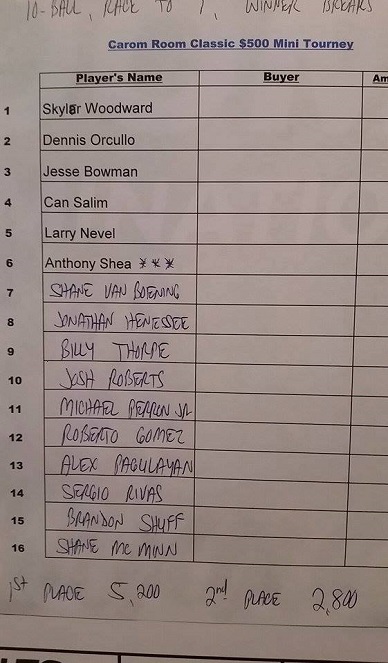 10-BALL, RACE TO 7, WINNER BREAKS
Carom Room Classic $500 Mini Tourney
Player's Name Buyer Am
1 Skyler Woodward
2 Dennis Orcullo
3 Jesse Bowman
4 Can Salim
5 Larry Nevel
6 Anthony Shea * * *
7 SHANE VAN BOENING
8 JONATHAN HENESSEE
9 BILLY THORPE
10 JOSH ROBERTS
11 MICHAEL PERRON JR
12 ROBERTO GOMEZ
13 ALEX PAGULAYAN
14 SERGIO RIVAS
15 BRANDON SHUFF
16 SHANE MC MINN
1st PLACE 5,200 2nd PLACE 2,800